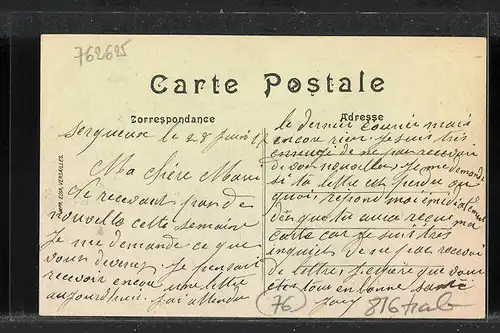 762625
Carte Postale
Correspondance
Adresse
IMP. EDIA, VERSAILLES
Serqueux le 28 Juin
Ma chère Marie
Je recevant pas de
nouvelle cette semaine
Je me demande ce que
vous devenez. Je pensais
recevoir encore une lettre
aujourd'hui. J'ai attendu
le dernier courrier mais
encore rien. Je suis très
ennuyé de ne pas recevoir
de vos nouvelles. Je me demande
si ta lettre est perdu ou
quoi, répond moi immédiatement
dès que tu auras recue ma
carte car je suis très
inquiet de ne pas recevoir
de lettre, j'espère que vous
êtes tous en bonne santé
76